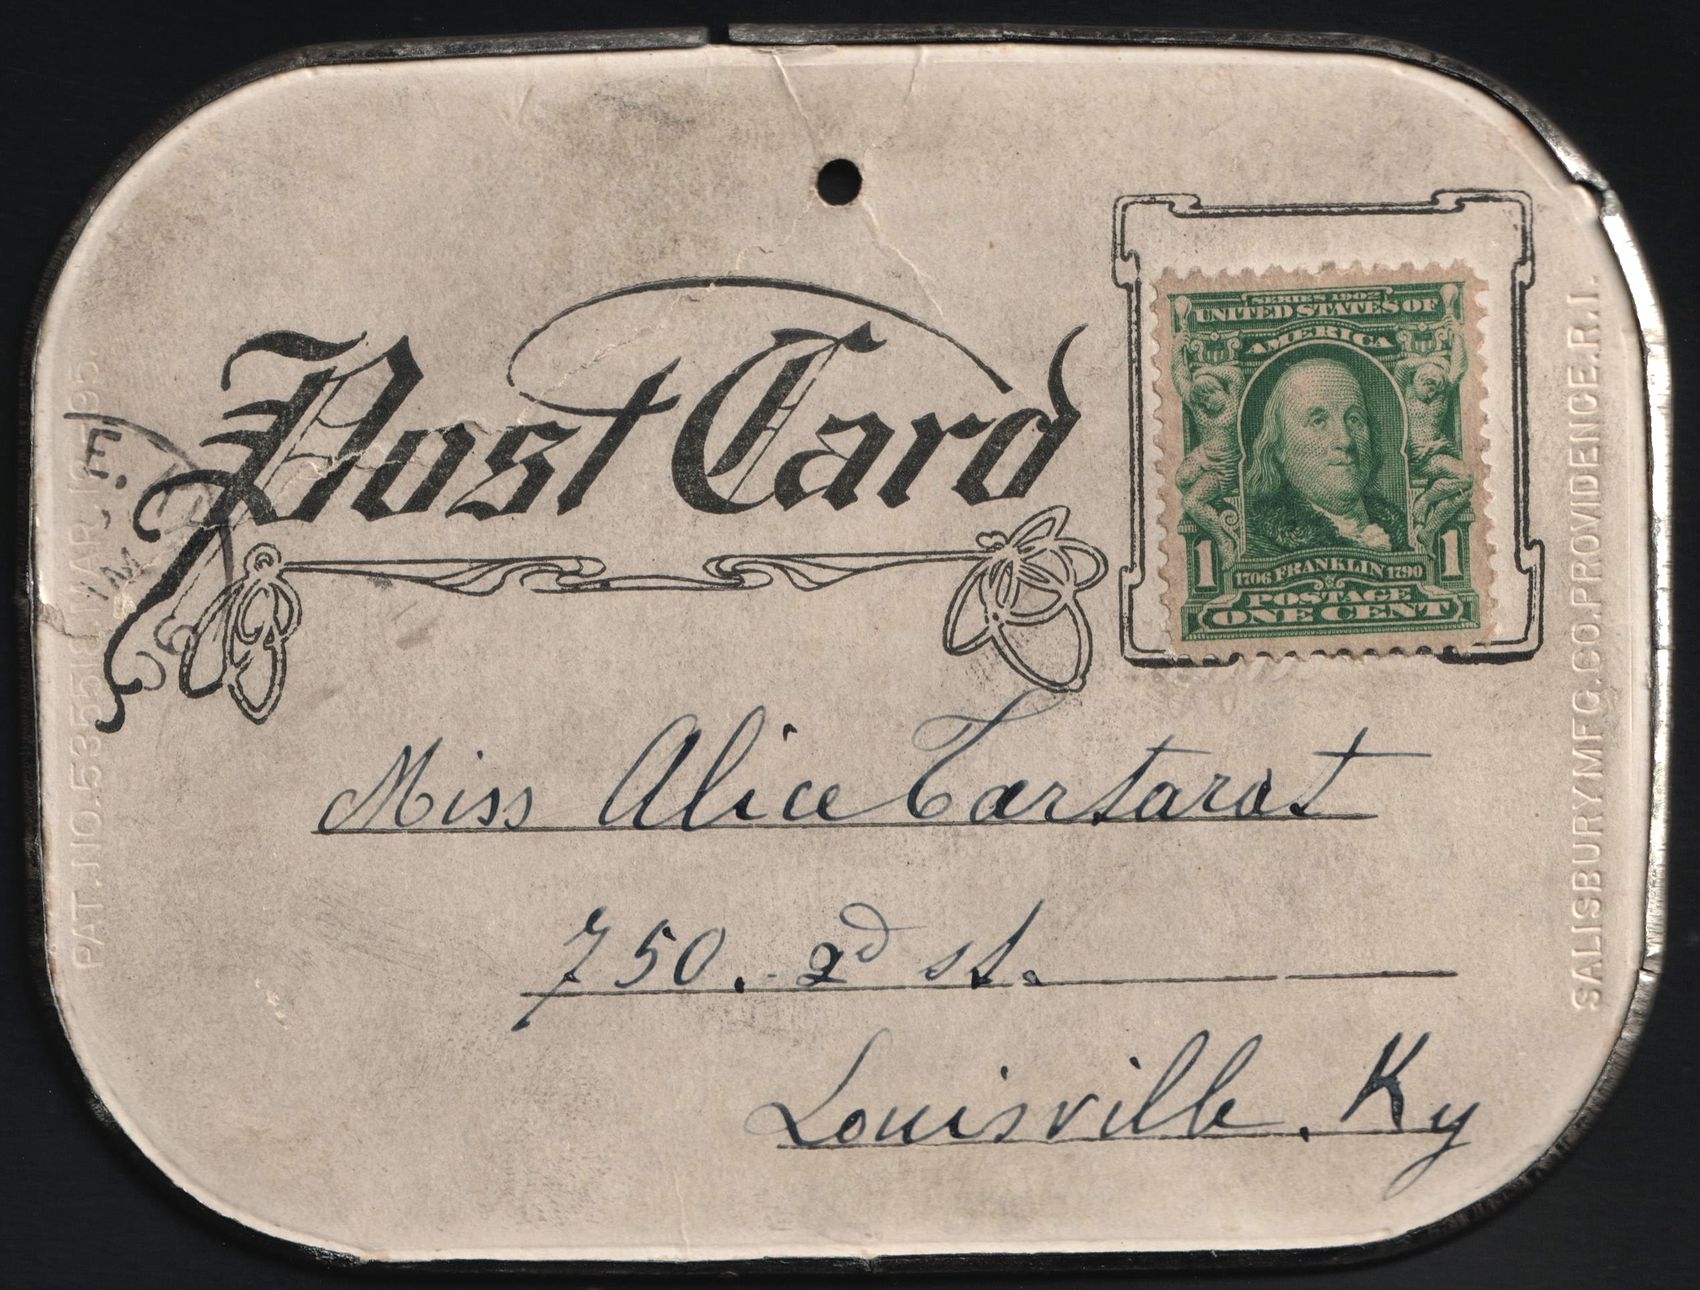 Post Card
SERIES 1902
UNITED STATES OF
AMERICA
1 1
1706 FRANKLIN 1790
POSTAGE
ONE CENT
Miss Alice Tartarat
750. 2d st.
Louisville. Ky
PAT. NO. 535518. MAR. 95.
SALISBURY MFG. CO. PROVIDENCE. R.I.